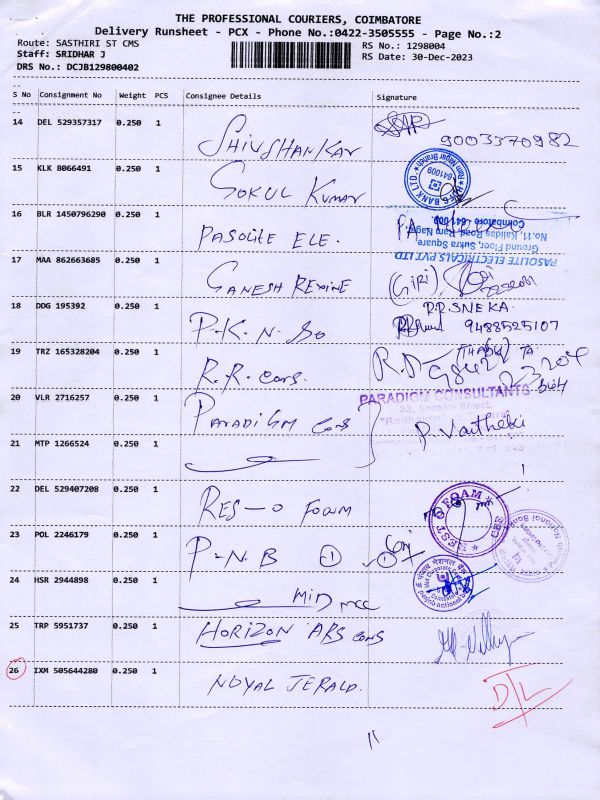 THE PROFESSIONAL COURIERS, COIMBATORE
Delivery Runsheet - PCX - Phone No.:0422-3505555 - Page No.:2
Route: SASTHIRI ST CMS
RS No.: 1298004
Staff: SRIDHAR J
RS Date: 30-Dec-2023
DRS No.: DCJB129800402
S No Consignment No Weight PCS Consignee Details Signature
14 DEL 529357317 0.250 1 SHIVSHANKAR 9003370982
15 KLK 8066491 0.250 1 GOKUL KUMAR
641009
16 BLR 1450796290 0.250 1 PASOLITE ELE.
PASOLITE ELECTRICALS PVT LTD
Ground Floor, Sukra Square
No.11, Kalidas Road, Ram Nagar
Coimbatore - 641 009.
17 MAA 862663685 0.250 1 GANESH REXINE (GIRI)
18 DDG 195392 0.250 1 P.K.N. So R.R.SNEKA.
9488525107
19 TRZ 165328204 0.250 1 R.R. cons
20 VLR 2716257 0.250 1 PARADIGM cons
PARADIGM CONSULTANTS
21 MTP 1266524 0.250 1 P. Vaitheki
22 DEL 529407208 0.250 1 RES-O FOAM
23 POL 2246179 0.250 1 P-N-B 1
24 HSR 2944898 0.250 1 MID mcc
25 TRP 5951737 0.250 1 HORIZON ABS cons
26 IXM 505644280 0.250 1 NOYAL JERALD.
D/L